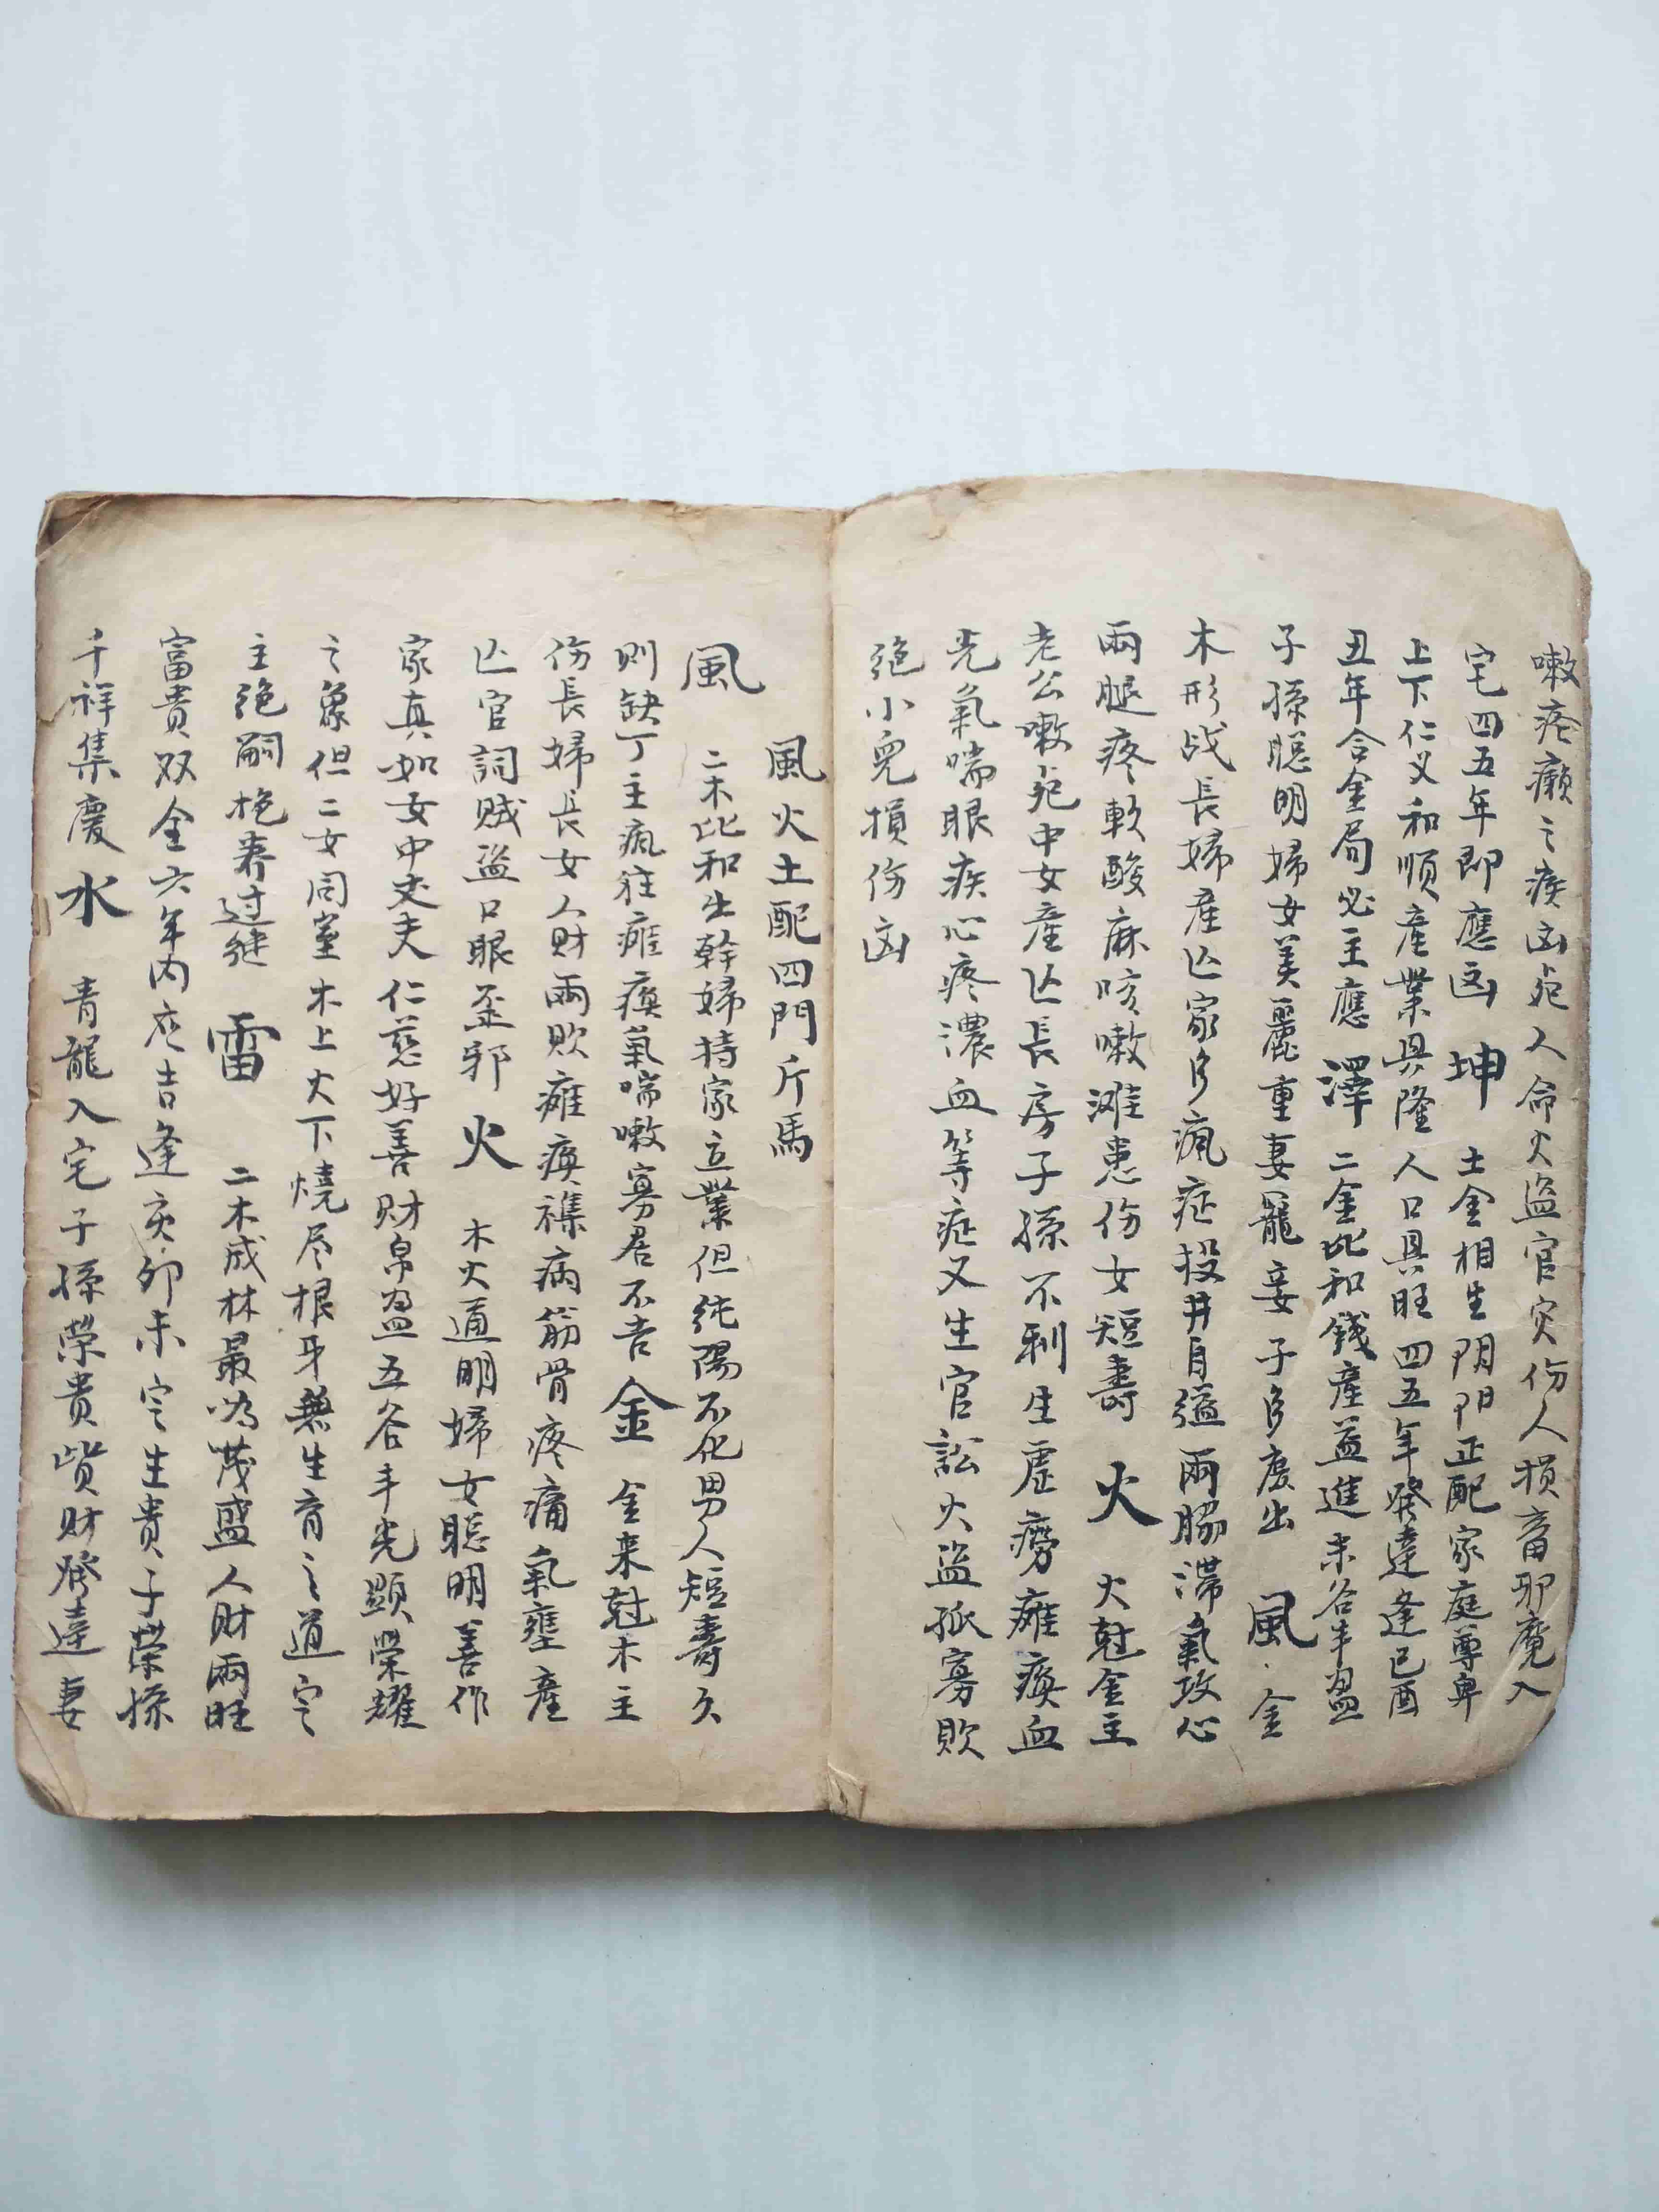 嗽疮癞之疾凶死人命火盗官灾伤人损畜邪魔入
宅四五年即應凶 坤 土金相生阴阳正配家庭尊卑
上下仁义和順產業具隆人口具旺四五年發達逢已酉
丑年合金局必主應 澤 二金比和錢產益進未谷丰盈
子孫聪明婦女美麗重妻寵妾子多庶出 風 金
木形战長婦產亡家多瘋症投井自縊兩脇滞氣攻心
兩腿疼軟酸麻咳嗽滩患伤女短壽 火 火尅金主
老公嗽死中女產亡長房子孫不利生虚癆癱瘓血
光氣喘眼疾心疼濃血等症又生官訟火盗孤寡敗
绝小兒損伤凶
風火土配四門斤馬
風 二木比和生幹婦持家立業但纯陽不化男人短壽久
則缺丁主瘋狂癱瘓氣喘嗽寡居不吉 金 金来尅木主
伤長婦長女人财兩敗癱瘓襍病筋骨疼痛氣壅產
亡官詞贼盗口眼歪邪 火 木火通明婦女聪明善作
家真如女中丈夫仁慈好善财帛盈五谷丰光顯榮耀
之象但二女同室木上火下燒尽根牙無生育之道定
主绝嗣抱养过继 雷 二木成林最為茂盛人财兩旺
富貴双全六年内应吉逢亥卯未定生貴子榮孫
千祥集慶 水 青龍入宅子孫榮貴貲财發達妻